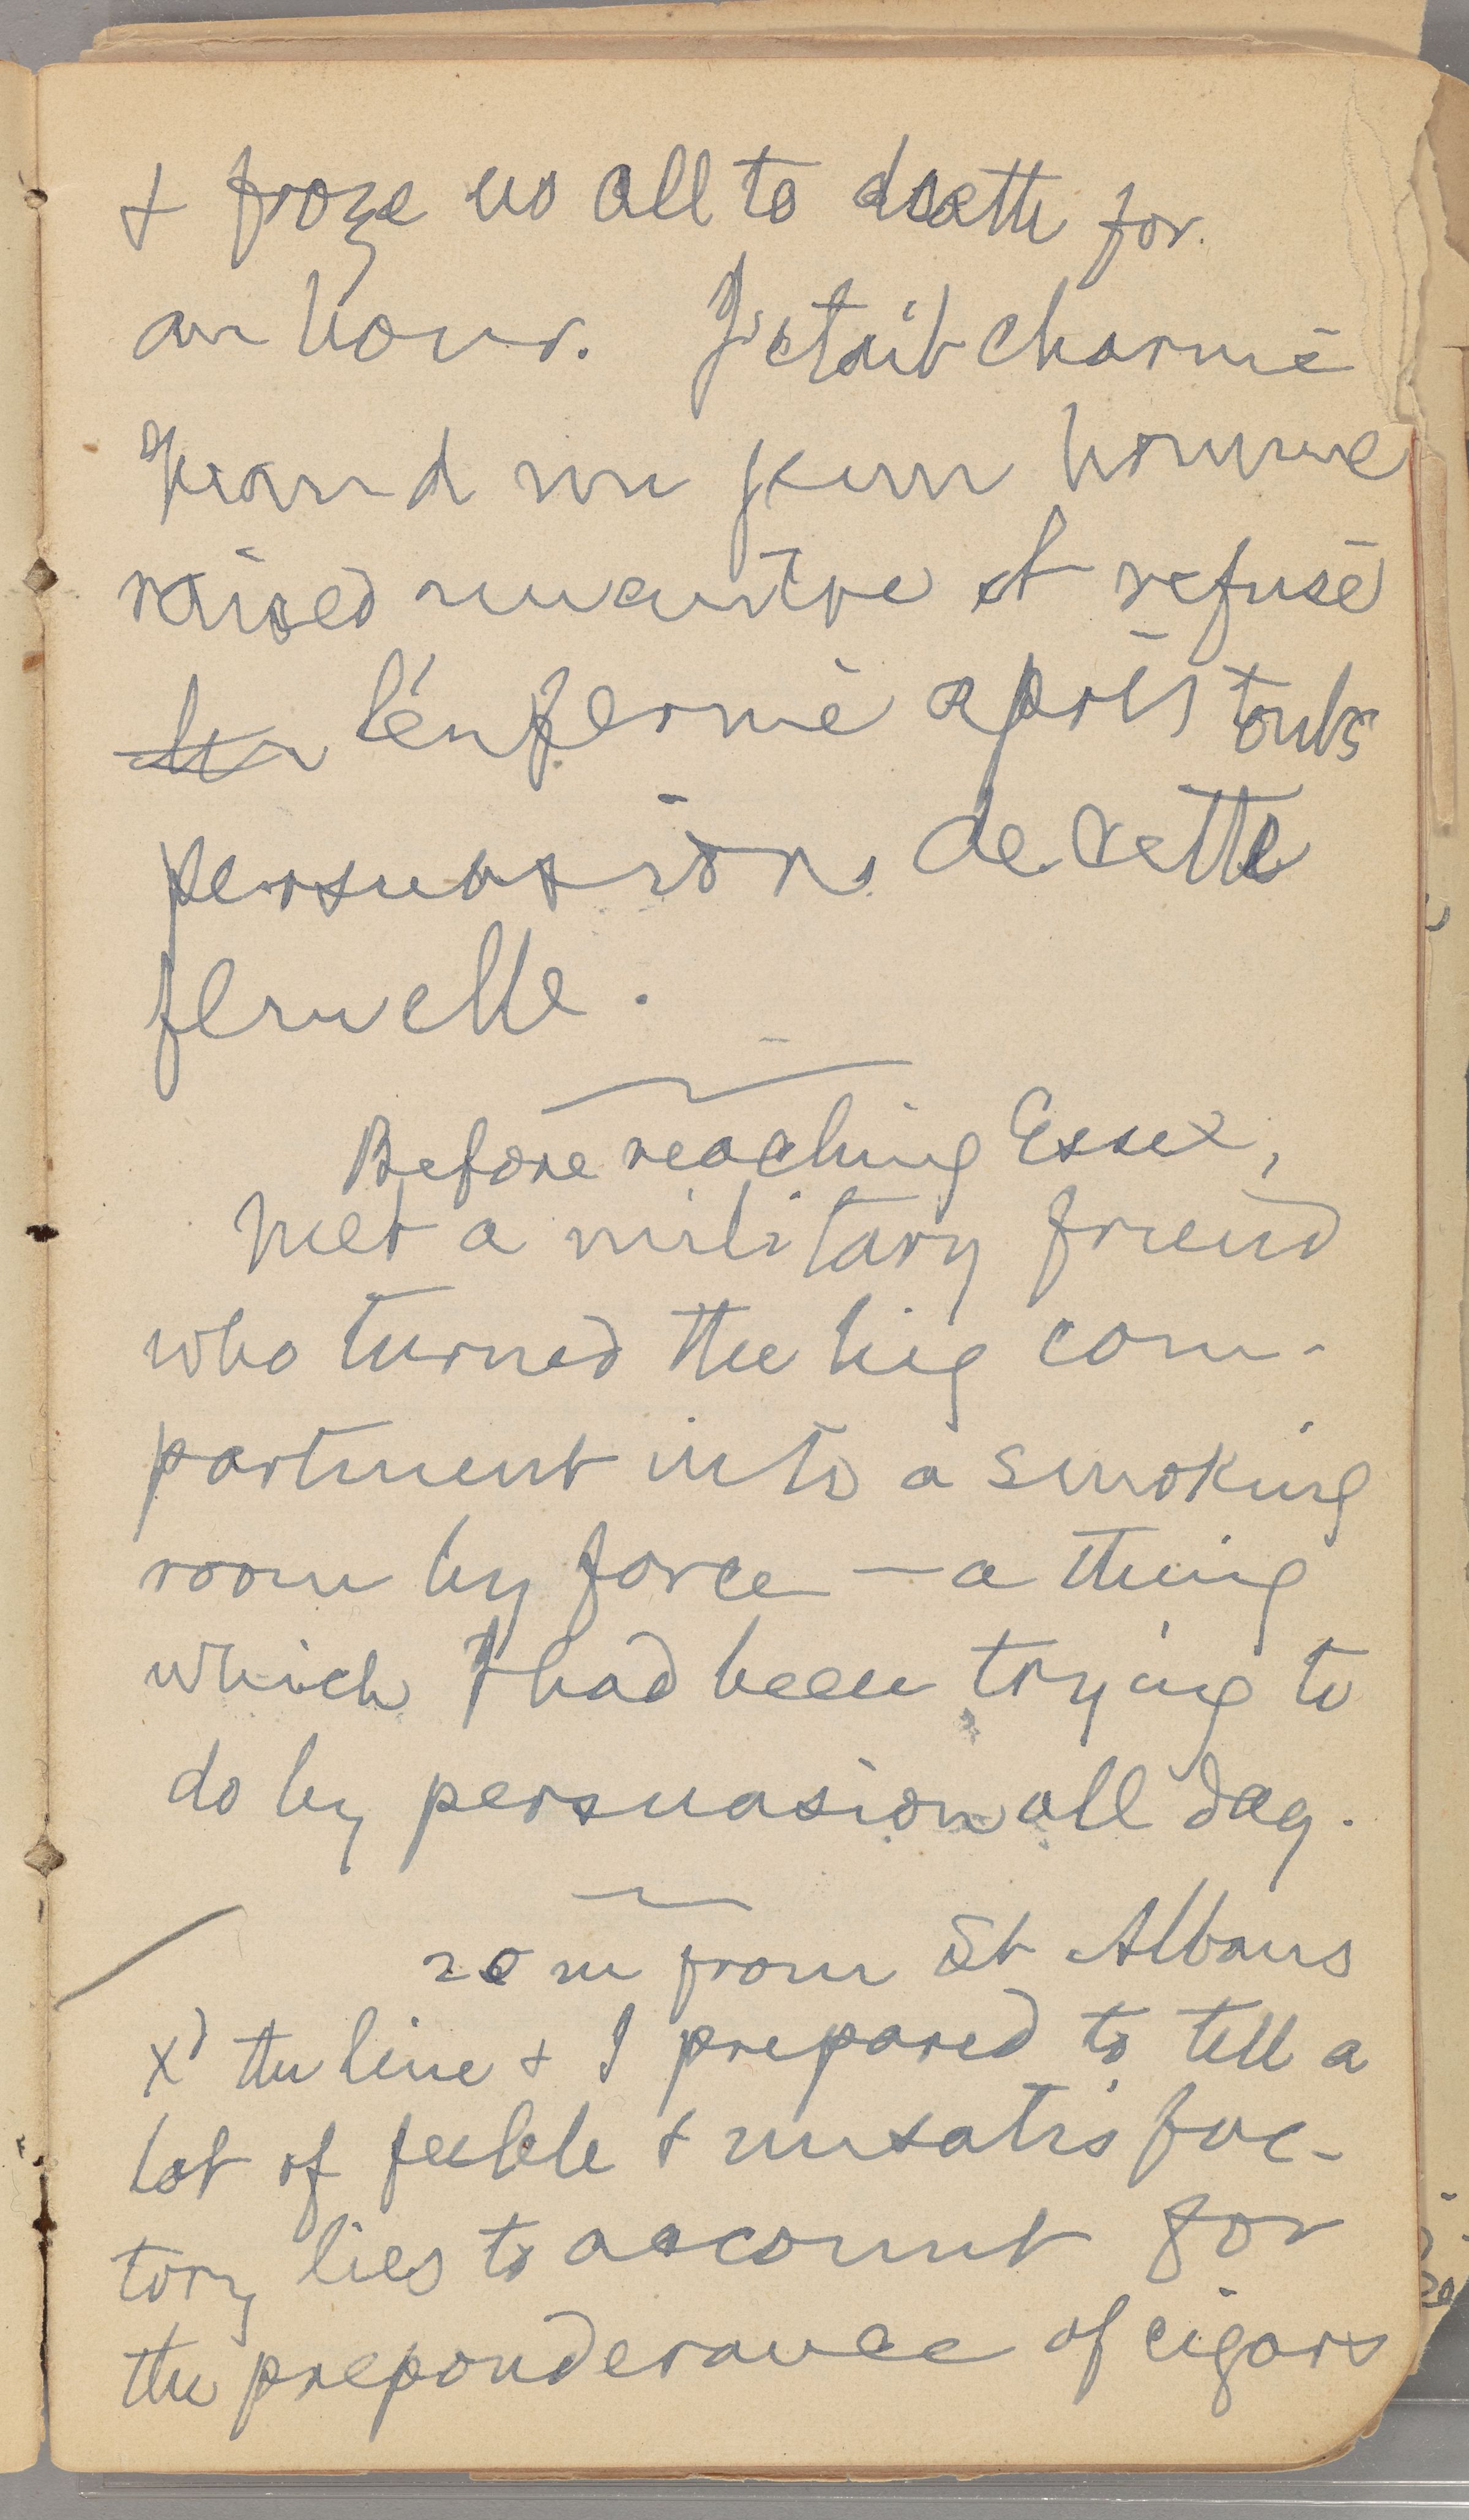 & froze us all to death for
an hour. J'etait charmé
quand un jeun homme
raised un autre et refusé
l'enfermé après touts
persuasions de cette
femelle.
Before reaching Essex,
met a military friend
who turned the big com-
partment into a smoking
room by force — a thing
which I had been trying to
do by persuasion all day.
20 m from St Albans
x'd the line & I prepared to tell a
lot of feeble & unsatisfac-
tory lies to account for
the preponderance of cigars